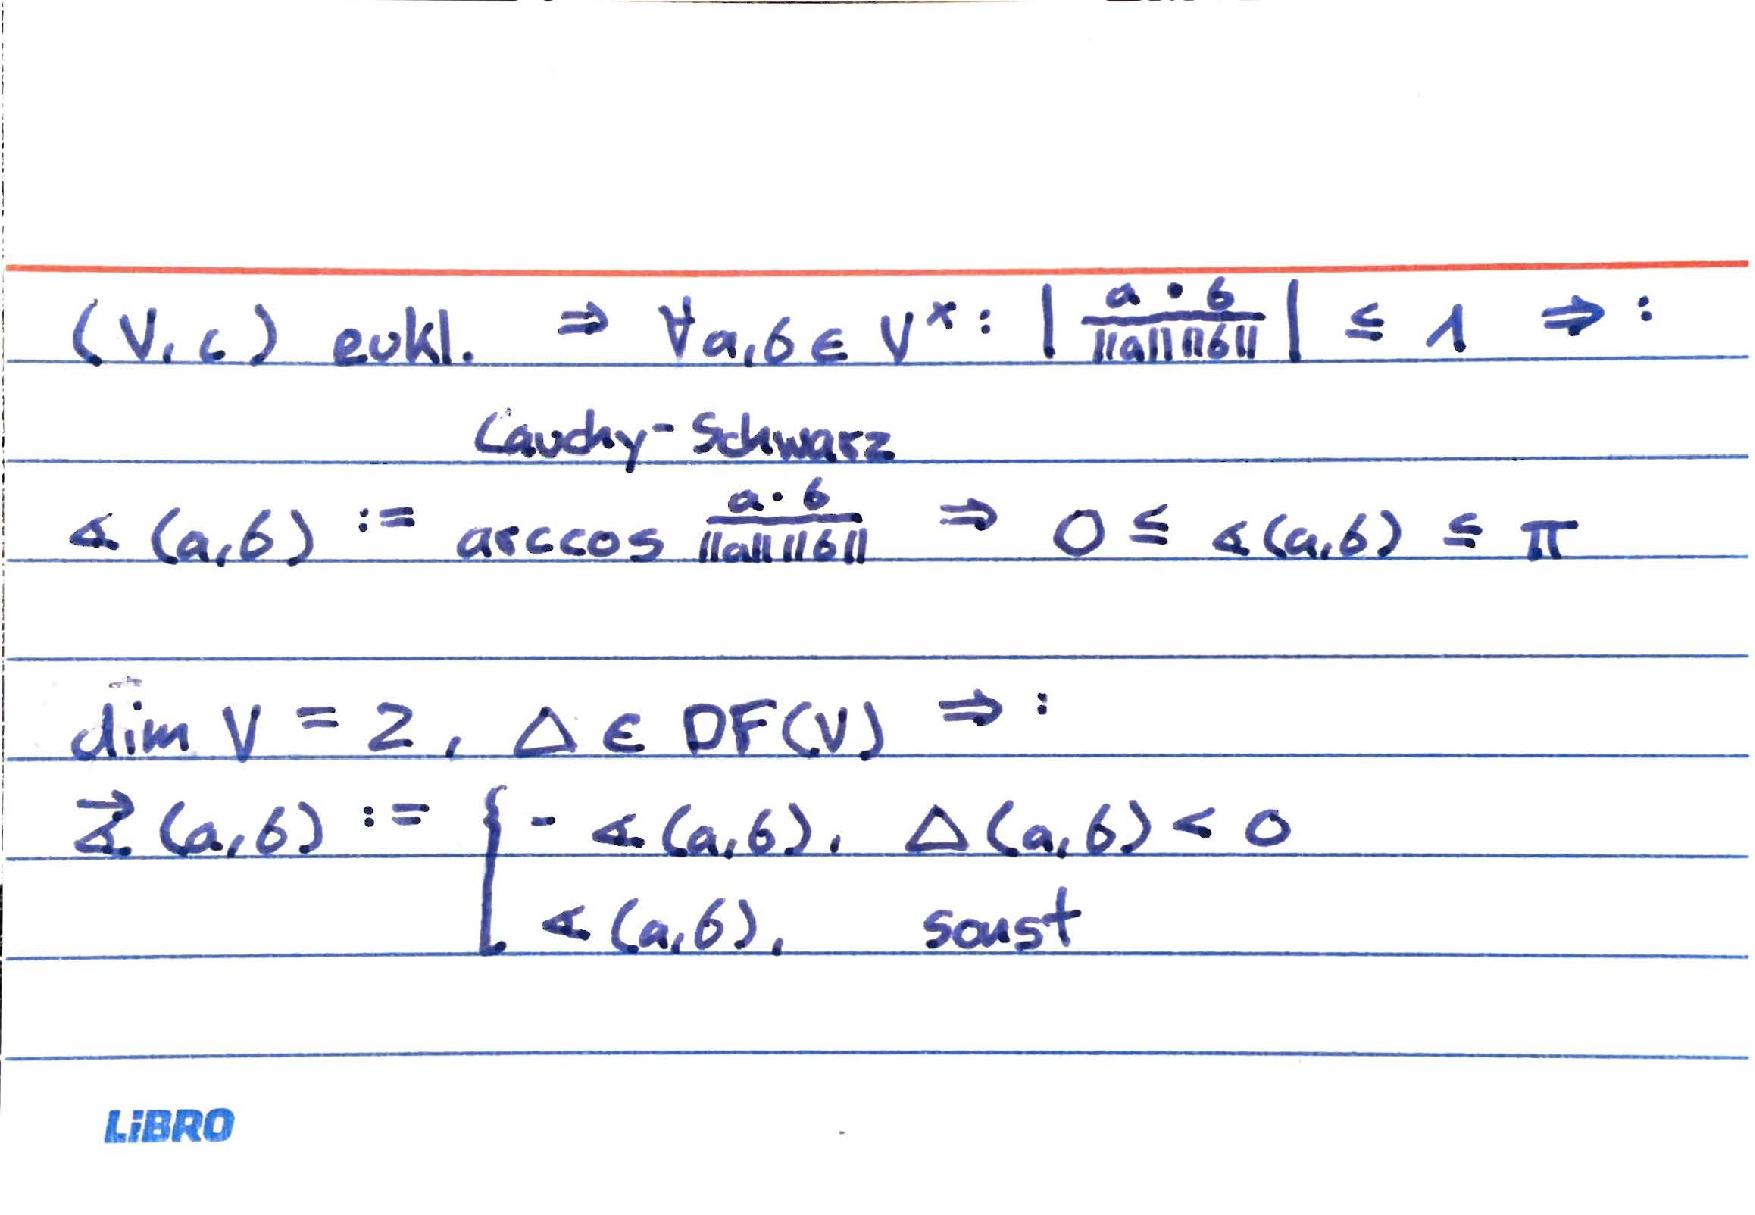 (V, c) eukl. ⇒ ∀a,b ∈ V^×: | a · b / ||a|| ||b|| | ≤ 1 ⇒ :
Cauchy-Schwarz
∢ (a,b) := arccos a · b / ||a|| ||b|| ⇒ 0 ≤ ∢(a,b) ≤ π
dim V = 2, Δ ∈ DF(V) ⇒ :
∢⃗ (a,b) := { - ∢(a,b), Δ(a,b) < 0
∢(a,b), sonst
LiBRO